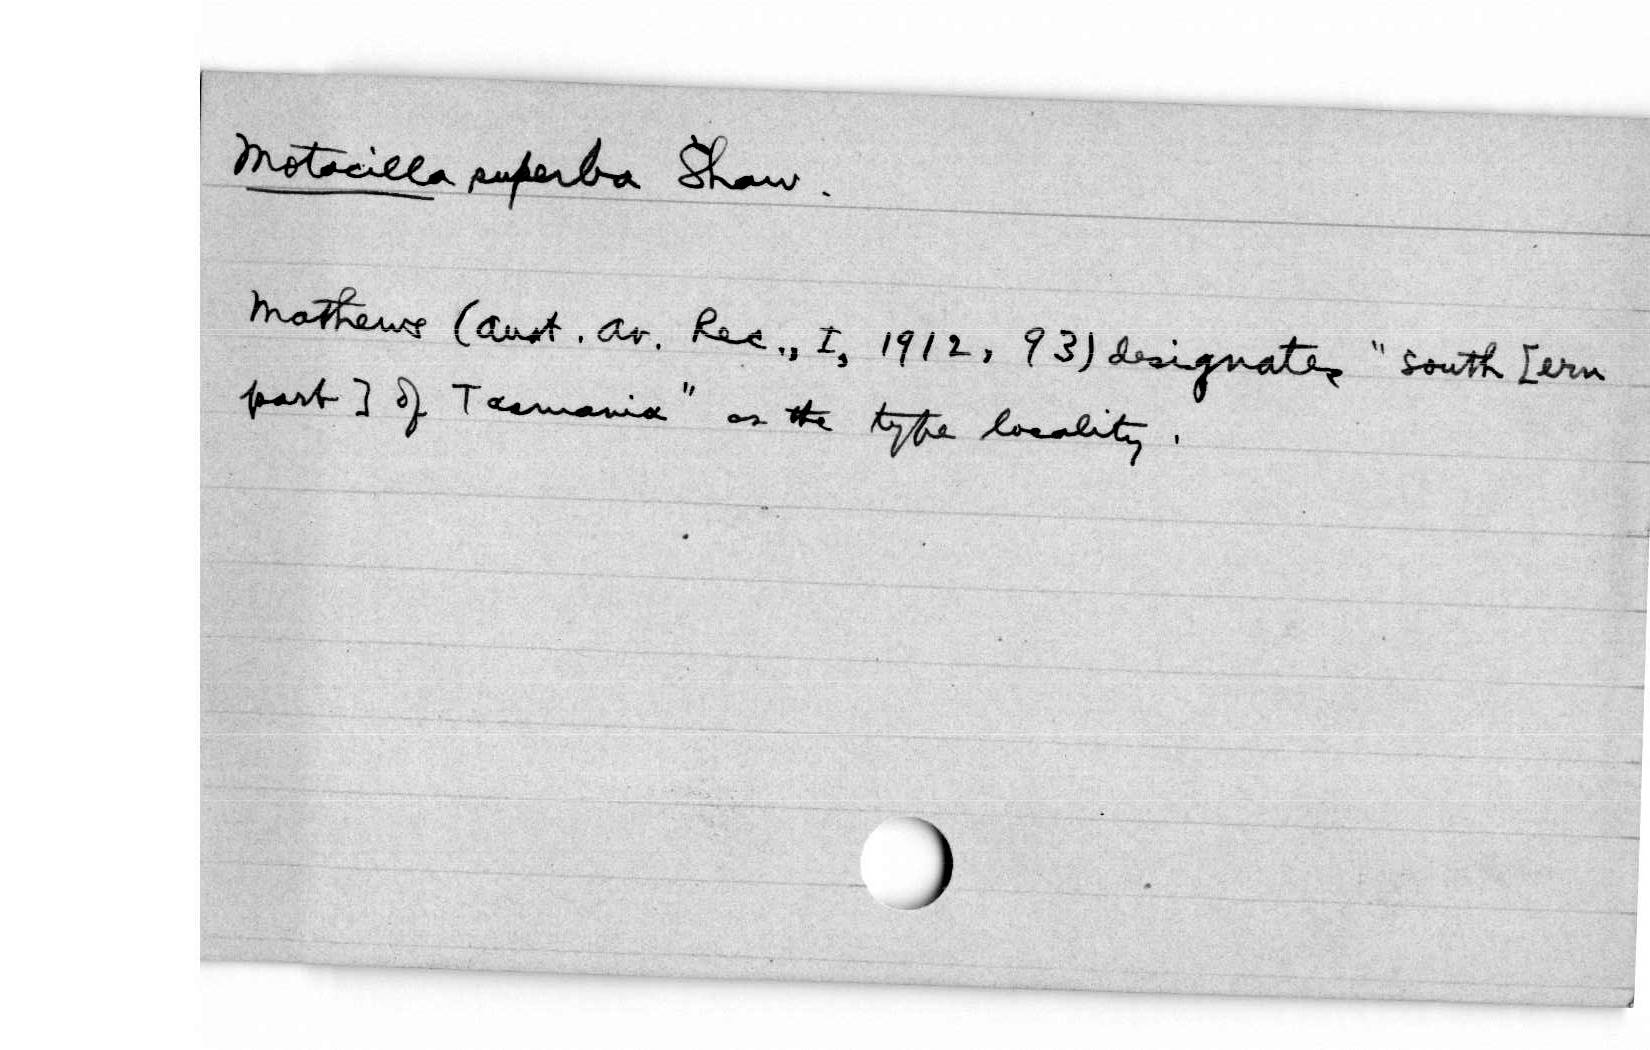 Motacilla superba Shaw.
Mathews (Aust. Av. Rec., I, 1912, 93) designates "South [ern
part] of Tasmania" as the type locality.